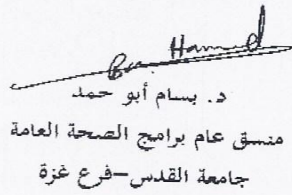 د. بسام أبو حمد
منسق عام برامج الصحة العامة
جامعة القدس–فرع غزة